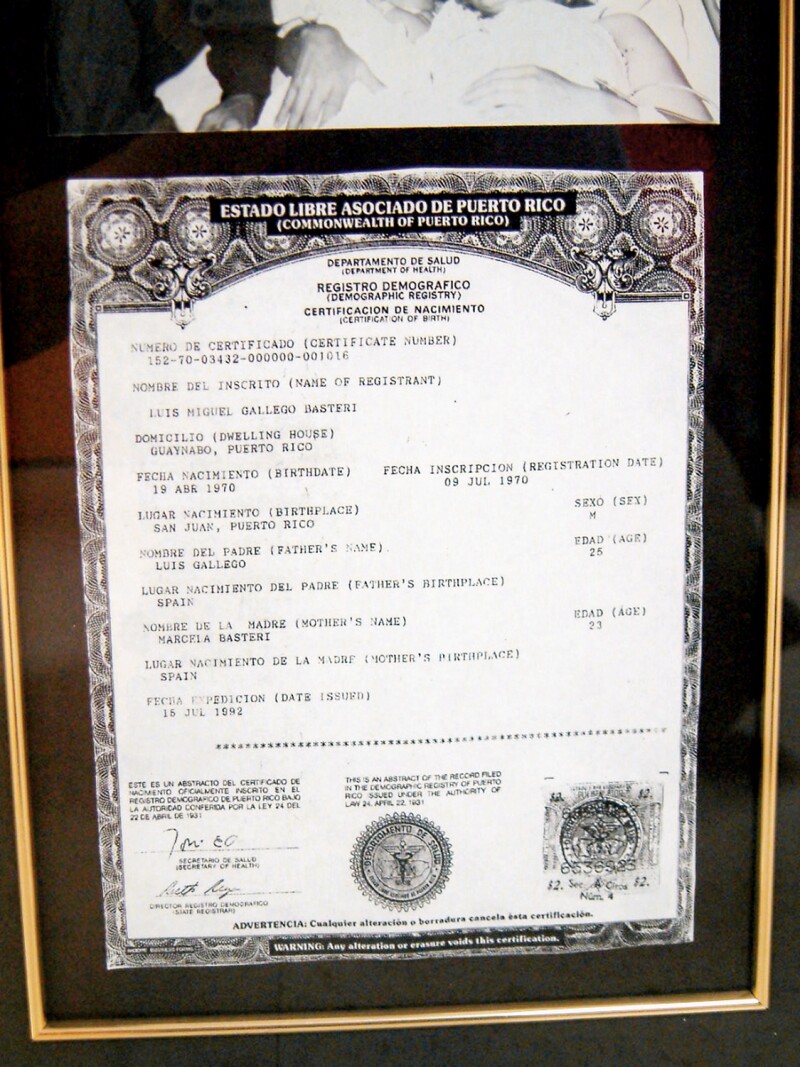 ESTADO LIBRE ASOCIADO DE PUERTO RICO
(COMMONWEALTH OF PUERTO RICO)
DEPARTAMENTO DE SALUD
(DEPARTMENT OF HEALTH)
REGISTRO DEMOGRAFICO
(DEMOGRAPHIC REGISTRY)
CERTIFICACION DE NACIMIENTO
(CERTIFICATION OF BIRTH)
NUMERO DE CERTIFICADO (CERTIFICATE NUMBER)
152-70-03432-000000-001016
NOMBRE DEL INSCRITO (NAME OF REGISTRANT)
LUIS MIGUEL GALLEGO BASTERI
DOMICILIO (DWELLING HOUSE)
GUAYNABO, PUERTO RICO
FECHA NACIMIENTO (BIRTHDATE) FECHA INSCRIPCION (REGISTRATION DATE)
19 ABR 1970 09 JUL 1970
LUGAR NACIMIENTO (BIRTHPLACE) SEXO (SEX)
SAN JUAN, PUERTO RICO M
NOMBRE DEL PADRE (FATHER'S NAME) EDAD (AGE)
LUIS GALLEGO 25
LUGAR NACIMIENTO DEL PADRE (FATHER'S BIRTHPLACE)
SPAIN
NOMBRE DE LA MADRE (MOTHER'S NAME) EDAD (AGE)
MARCELA BASTERI 23
LUGAR NACIMIENTO DE LA MADRE (MOTHER'S BIRTHPLACE)
SPAIN
FECHA EXPEDICION (DATE ISSUED)
15 JUL 1992
ESTE ES UN ABSTRACTO DEL CERTIFICADO DE
NACIMIENTO OFICIALMENTE INSCRITO EN EL
REGISTRO DEMOGRAFICO DE PUERTO RICO BAJO
LA AUTORIDAD CONFERIDA POR LA LEY 24 DEL
22 DE ABRIL DE 1931
THIS IS AN ABSTRACT OF THE RECORD FILED
IN THE DEMOGRAPHIC REGISTRY OF PUERTO
RICO ISSUED UNDER THE AUTHORITY OF
LAW 24, APRIL 22, 1931
SECRETARIO DE SALUD
(SECRETARY OF HEALTH)
DIRECTOR REGISTRO DEMOGRAFICO
(STATE REGISTRAR)
DEPARTAMENTO DE SALUD
$2. $2.
$2. Sec. A Ciros $2.
Núm. 4
ADVERTENCIA: Cualquier alteración o borradura cancela ésta certificación.
WARNING: Any alteration or erasure voids this certification.
MOORE BUSINESS FORMS